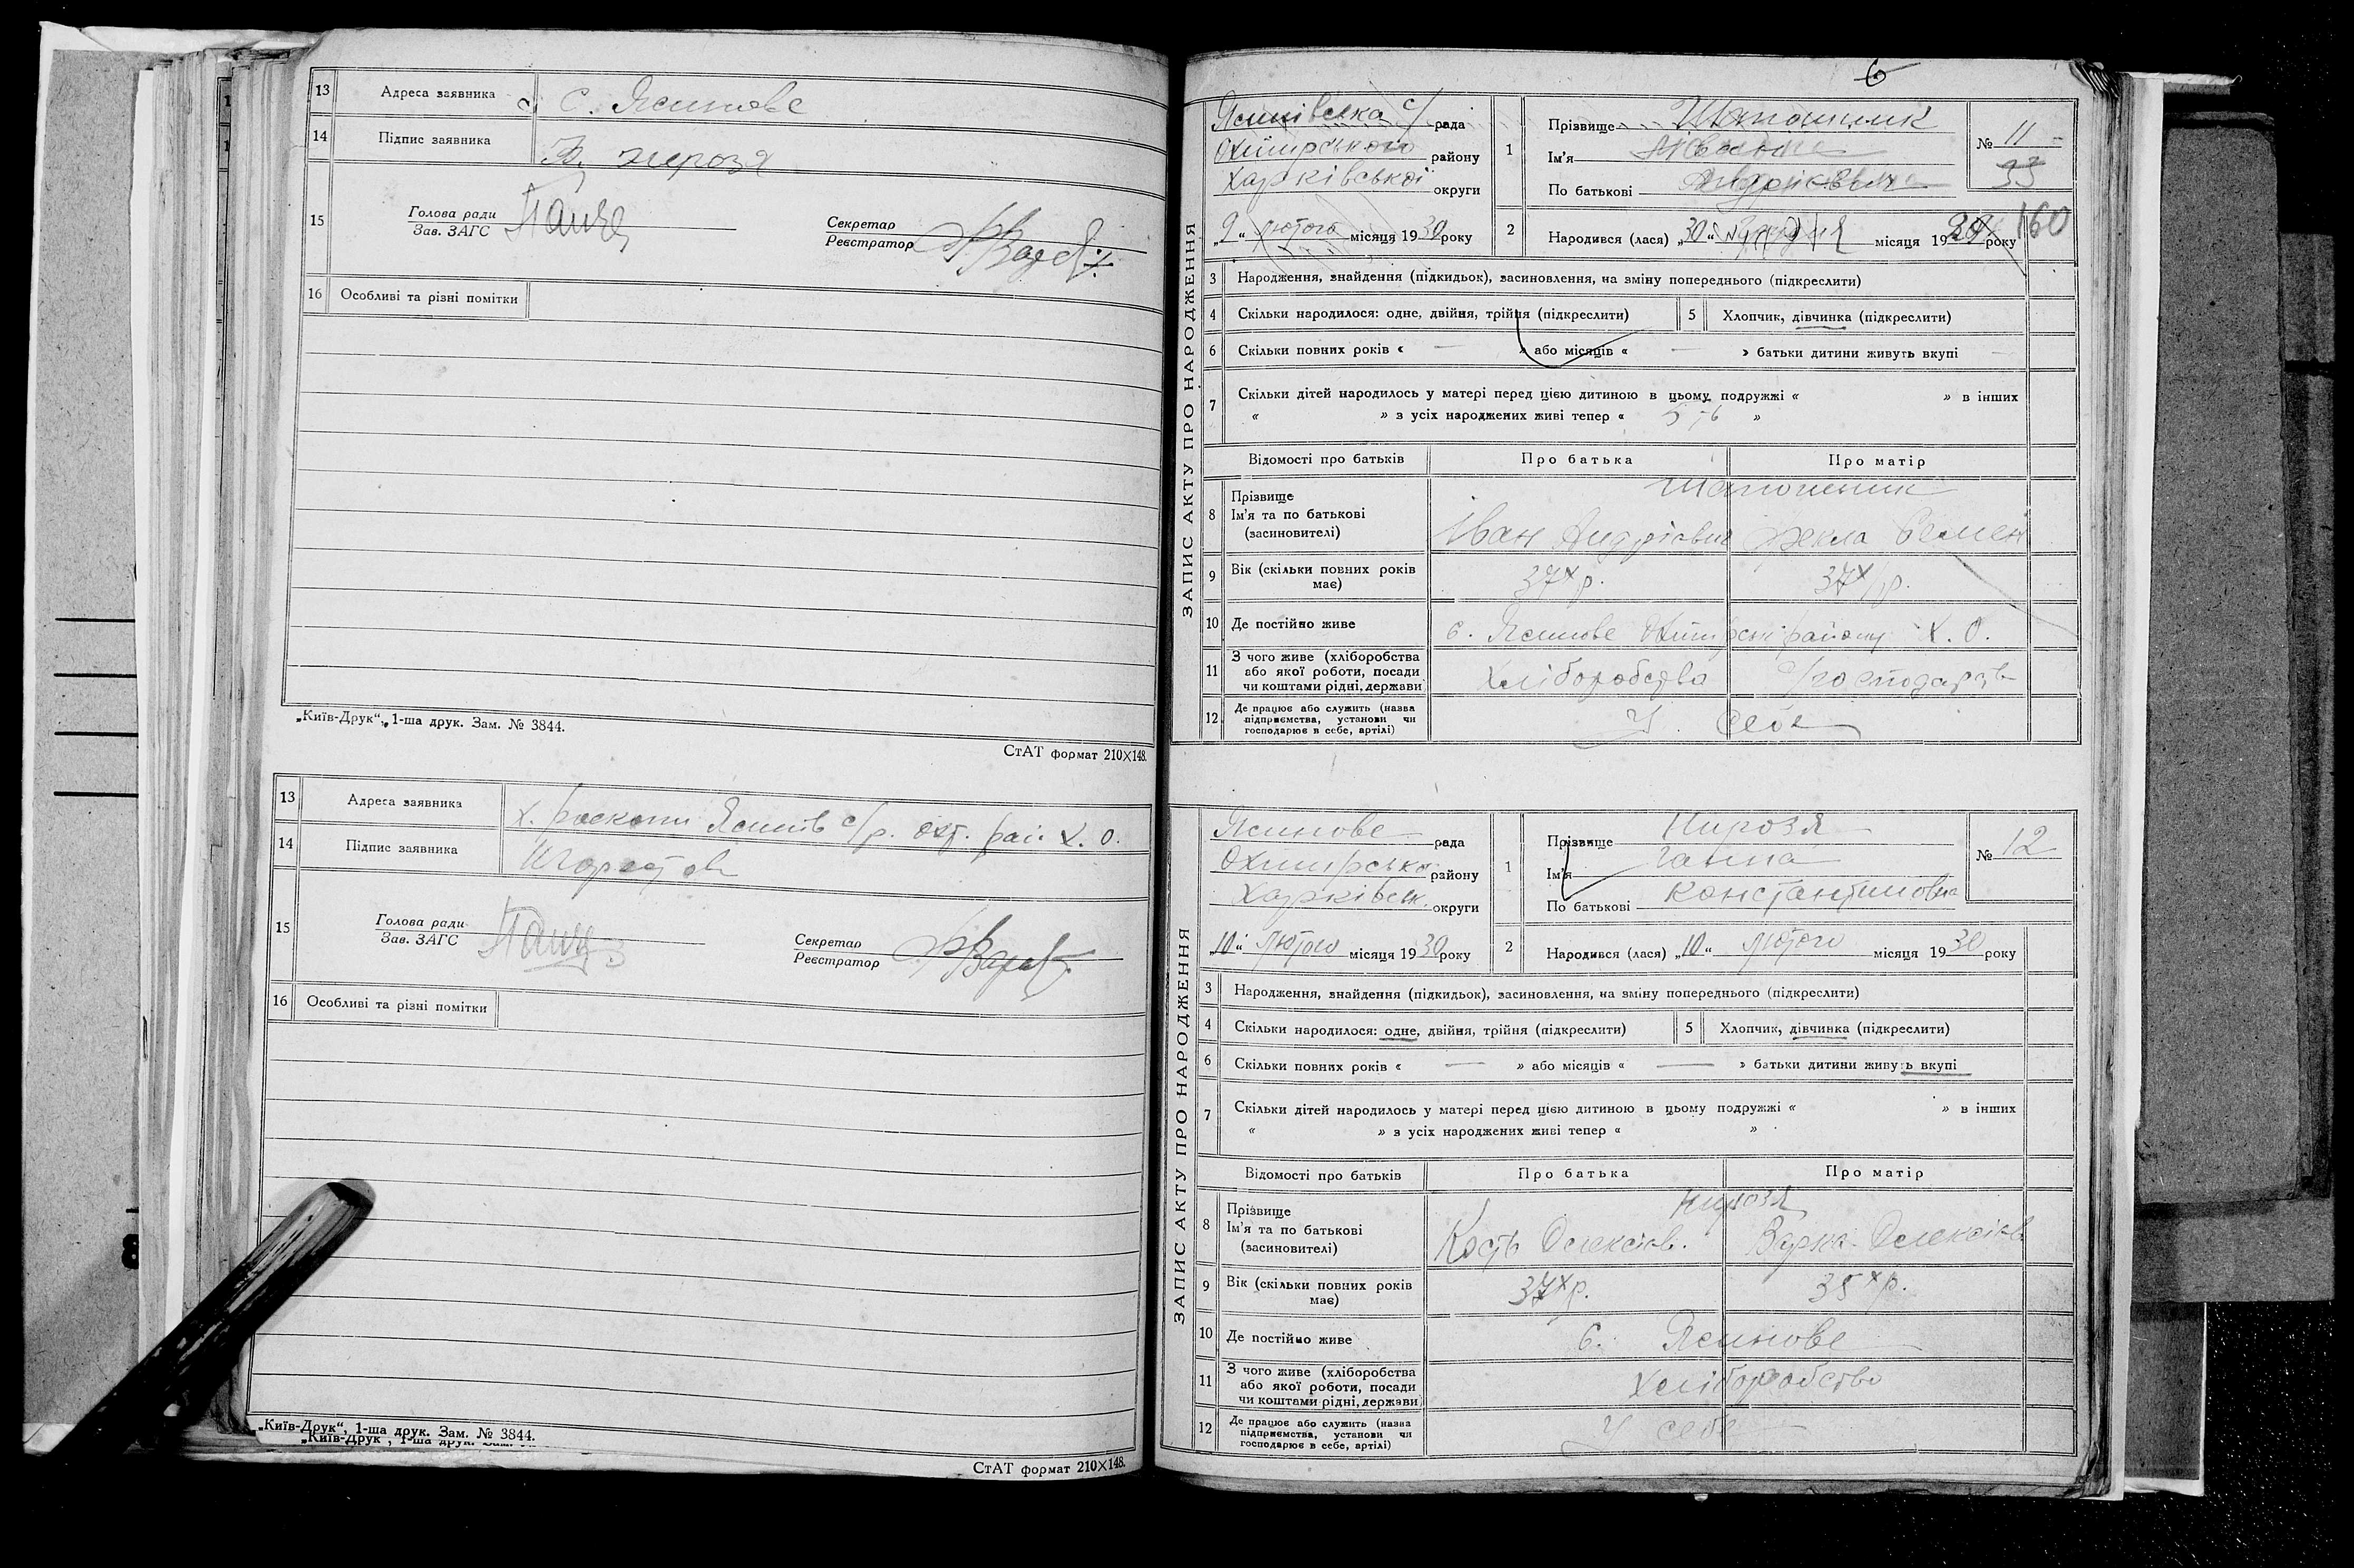 13 Адреса заявника с. Ясинове
14 Підпис заявника
15 Голова ради
Зав. ЗАГС
Секретар
Реєстратор
16 Особливі та різні помітки
„Київ-Друк“, 1-ша друк. Зам. № 3844.
СтАТ формат 210×148.
13 Адреса заявника х. Роскопи Ясинів с/р. Охт. рай Х. О.
14 Підпис заявника
15 Голова ради
Зав. ЗАГС
Секретар
Реєстратор
16 Особливі та різні помітки
„Київ-Друк“, 1-ша друк. Зам. № 3844.
СтАТ формат 210×148.
6
ЗАПИС АКТУ ПРО НАРОДЖЕННЯ
Ясинівська с/рада
Охтирського району
Харківської округи
„9“ лютого місяця 1930 року
1 Прізвище Шапошник
Ім'я
По батькові
№ 11
33
160
2 Народився (лася) „30“ місяця 1929 року
3 Народження, знайдення (підкидьок), засиновлення, на зміну попереднього (підкреслити)
4 Скільки народилося: одне, двійня, трійня (підкреслити) 5 Хлопчик, дівчинка (підкреслити)
6 Скільки повних років « — » або місяців « — » батьки дитини живуть вкупі —
7 Скільки дітей народилось у матері перед цією дитиною в цьому подружжі « » в інших
« » з усіх народжених живі тепер « 5-ть »
Відомості про батьків Про батька Про матір
8 Прізвище Шапошник
Ім'я та по батькові
(засиновителі) Іван Андріович Текла Семен
9 Вік (скільки повних років має) 37х р. 37х р.
10 Де постійно живе с. Ясинове Охтирськ району Х. О.
11 З чого живе (хліборобства
або якої роботи, посади
чи коштами рідні, держави Хліборобства с/господарств
12 Де працює або служить (назва
підприємства, установи чи
господарює в себе, артілі) У себе
ЗАПИС АКТУ ПРО НАРОДЖЕННЯ
Ясинове рада
Охтирсько району
Харківськ. округи
„10“ лютого місяця 1930 року
1 Прізвище Нирозя
Ім'я Ганна
По батькові Константиновна
№ 12
2 Народився (лася) „10“ лютого місяця 1930 року
3 Народження, знайдення (підкидьок), засиновлення, на зміну попереднього (підкреслити)
4 Скільки народилося: одне, двійня, трійня (підкреслити) 5 Хлопчик, дівчинка (підкреслити)
6 Скільки повних років « — » або місяців « — » батьки дитини живуть вкупі
7 Скільки дітей народилось у матері перед цією дитиною в цьому подружжі « » в інших
« » з усіх народжених живі тепер « »
Відомості про батьків Про батька Про матір
8 Прізвище Нирозя
Ім'я та по батькові
(засиновителі) Кость Олексіов. Варка Олексіов
9 Вік (скільки повних років має) 37х р. 35х р.
10 Де постійно живе с. Ясинове
11 З чого живе (хліборобства
або якої роботи, посади
чи коштами рідні, держави Хліборобство
12 Де працює або служить (назва
підприємства, установи чи
господарює в себе, артілі) У себе